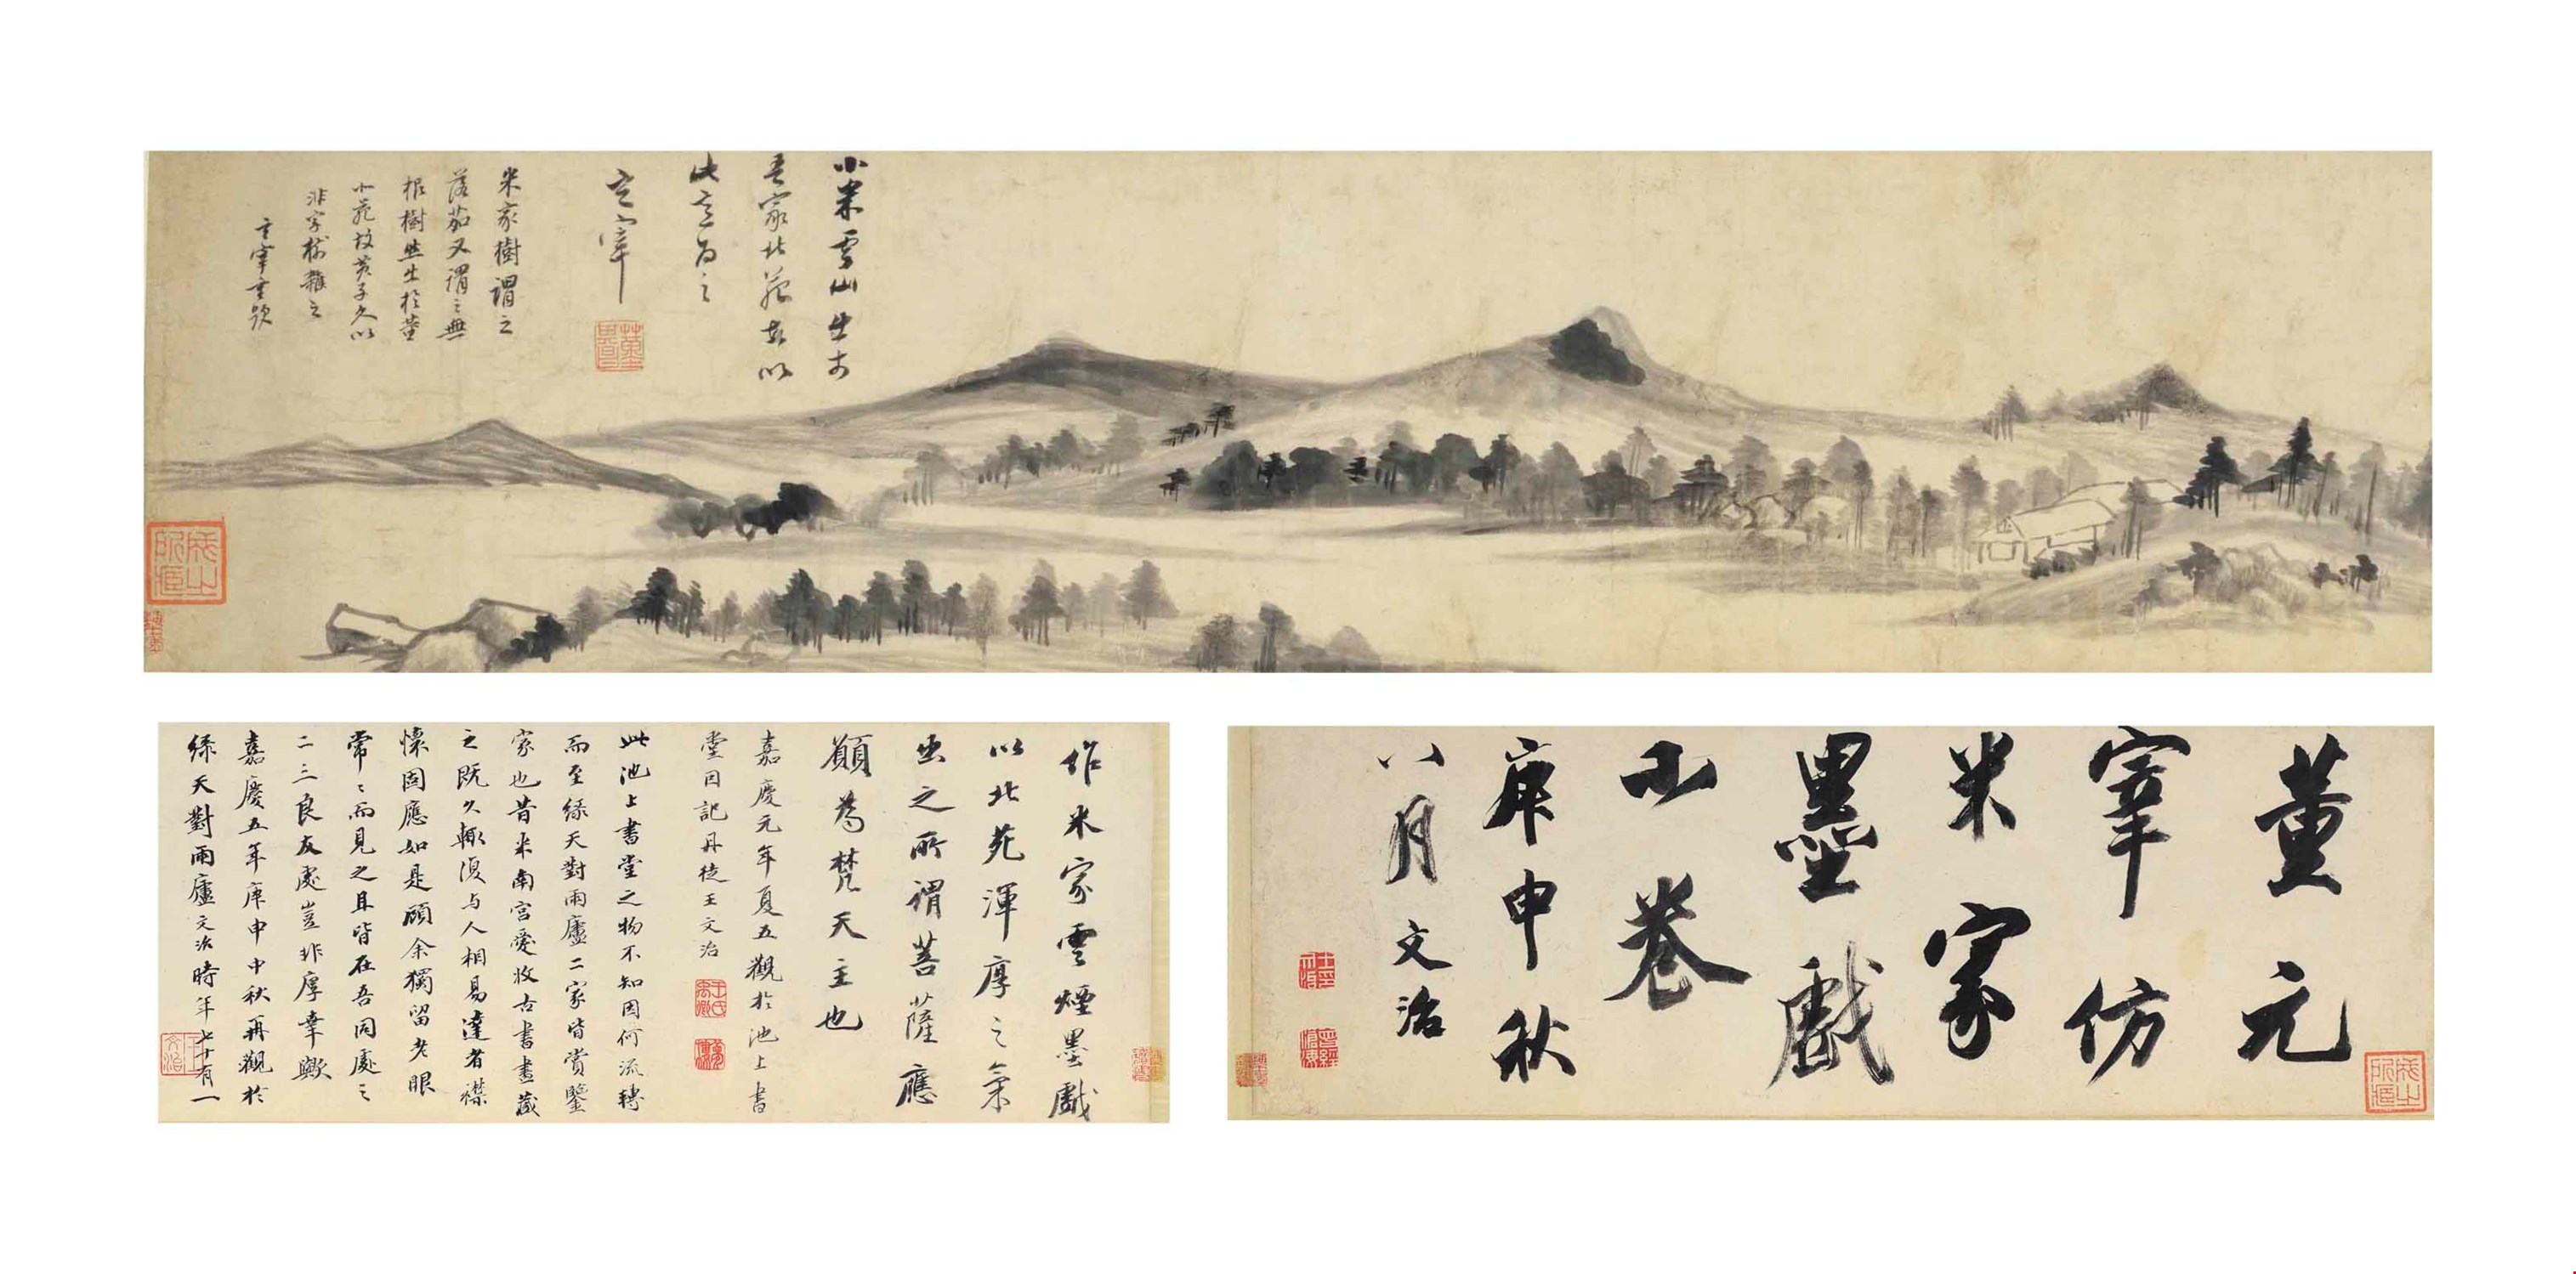 小米雲山出於
吾家北苑故以
此意為之
玄宰
米家樹謂之
落茄又謂之無
根樹然出於董
北苑故黃子久以
非字樹雜之
玄宰重題
董元
宰仿
米家
墨戲
小卷
庚申秋
八月文治
作米家雲煙墨戲
以北苑渾厚之氣
出之所謂菩薩應
願為梵天主也
嘉慶元年夏五觀於池上書
堂因記丹徒王文治
此池上書堂之物不知因何流轉
而至綠天對雨廬二家皆賞鑒
家也昔米南宮愛收古書畫藏
之既久輒復与人相易達者襟
懷固應如是顧余獨留老眼
常々而見之且皆在吾同處之
二三良友處豈非厚幸歟
嘉慶五年庚申中秋再觀於
綠天對雨廬文治時年七十有一